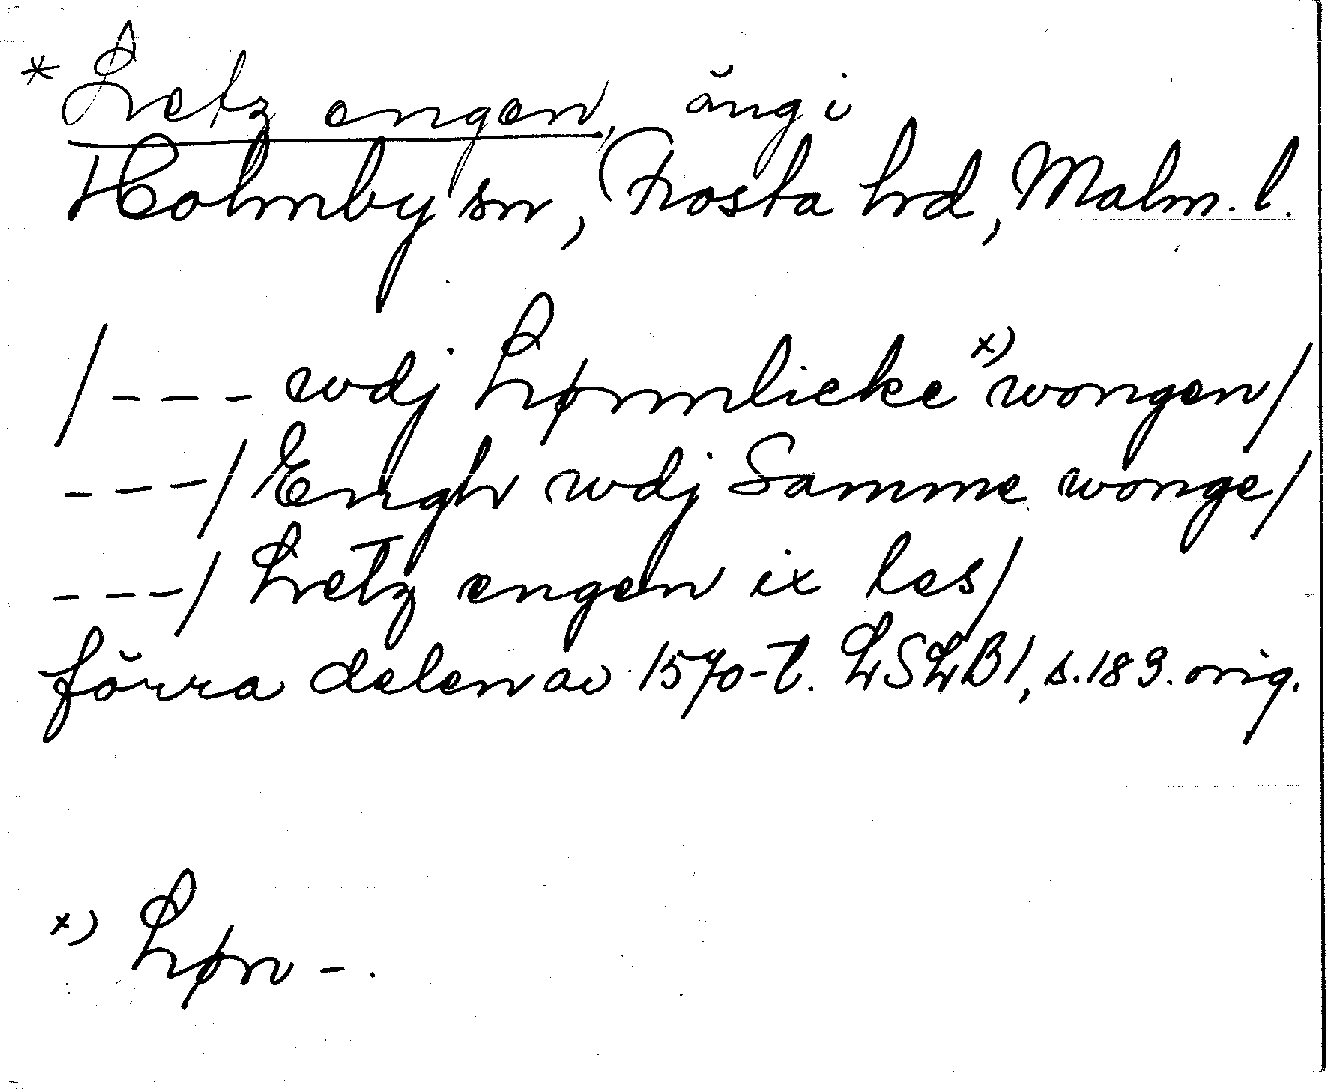 * Letz engen, äng i
Holmby sn, Frosta hd, Malm. l.
/ - - - wdj Lønnlicke x) wongen /
- - - / Engh wdj Samme wonge /
- - - / Letz engen ix les /
förra delen av 1570-t. LSLB 1, s. 183. orig.
x) Løn - .